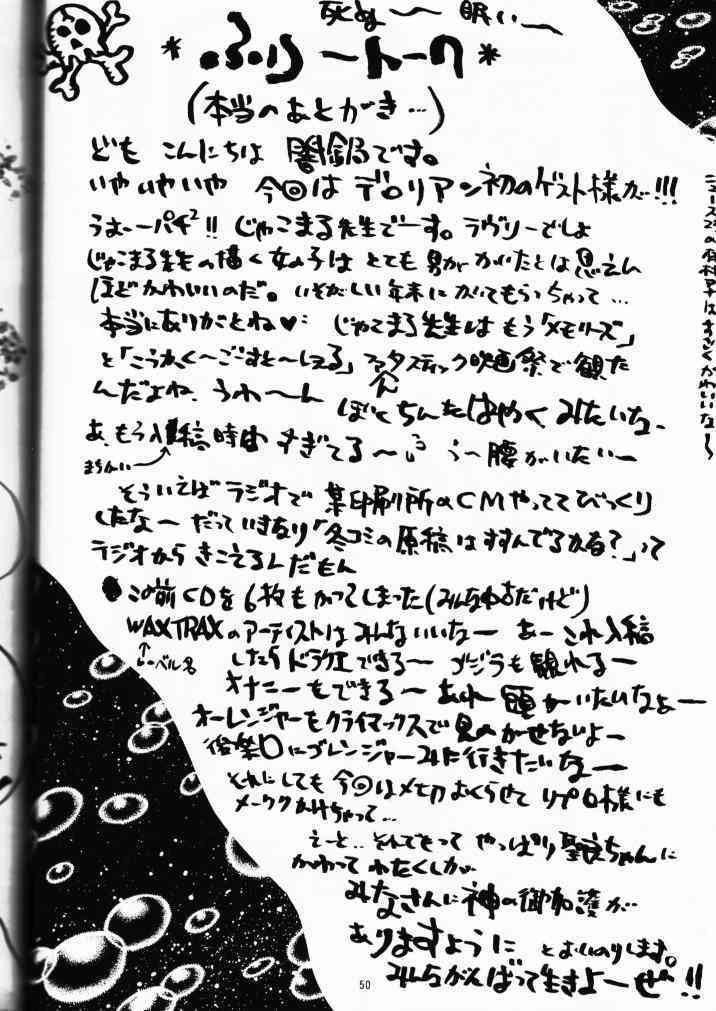 死ぬ〜 眠い〜
*ふりートーク*
(本当のあとがき…)
ども こんにちは 闇鍋です。
いやいやいや 今回は デロリアン初のゲスト様が…!!!
うおーーパチ²!! じゃこまる先生でーす。ラヴリーでしょ
じゃこまる先生の描く女の子は とても 男が かいたとは思えん
ほど かわいいのだ。いそがしい年末に かいてもらっちゃって…
本当にありがとね♥ じゃこまる先生は もう「メモリーズ」
と「こうかく〜ごーすと〜しぇる」ファンタスティック映画祭で観た
んだよね、うわ〜ん ぼくちんもはやく みたいな〜
あ、もう入稿時間 すぎてる〜 う〜腰がいたいー
そういえば ラジオで 某印刷所のCMやっててびっくり
したなー だって いきなり「冬コミの原稿はすすんでるかな?」って
ラジオから きこえるんだもん
この前CDを6枚もかってしまった(みんな中古だけど)
WAXTRAXのアーティストは みんないいなー あー これ入稿
↑レーベル名
したら ドラクエできるー ゴジラも観れるー
オナニーもできるー あれ 頭がいたいなぁー
オーレンジャーもクライマックスで 見のがせないよー
後楽園にゴレンジャーみに行きたいなー
それにしても 今回はメチャおくらせて リプロ様にも
メーワクかけちゃって…
えーと… そんでもって やっぱり 聖衣ちゃんに
かわって わたくしが
みなさんに 神の御加護が…
ありますように とおいのりします。
みんな がんばって生きよーぜ!!
50